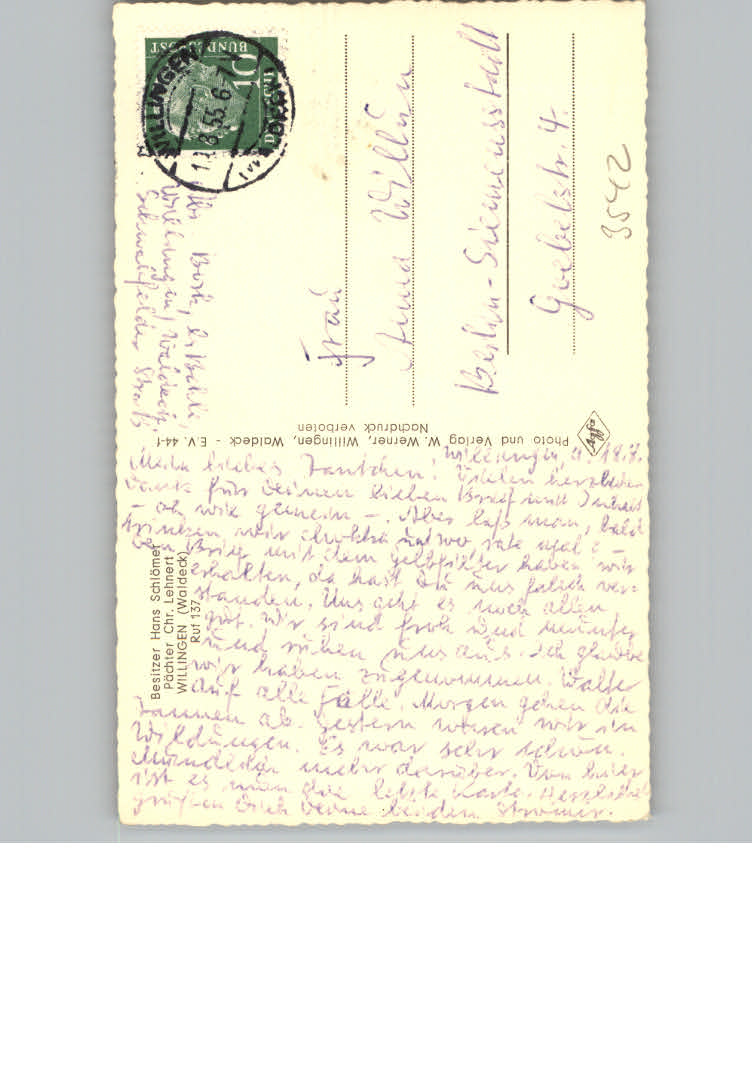 Willingen, d. 18.7.
Mein liebes Tantchen! Vielen herzlichen
Dank für Deinen lieben Brief mit Inhalt
– oh, wie gemein –. Aber laß man, bald
trinken wir
Brief mit dem haben wir
erhalten, da hast Du uns falsch ver-
standen. Uns geht es noch allen
gut. Wir sind froh und munter
und ruhen uns aus. Ich glaube
wir haben zugenommen. Walter
auf alle Fälle. Morgen gehen die
ab. Gestern waren wir in
Wildungen. Es war sehr schön.
Mündlich mehr darüber. Von hier
ist es nun die letzte Karte. Herzlichst
grüßen Dich Deine beiden Stromer.
Besitzer Hans Schlömer
Pächter Chr. Lehnert
WILLINGEN (Waldeck)
Ruf 137
Photo und Verlag W. Werner, Willingen, Waldeck - E.V. 44-f
Nachdruck verboten
Agfa
Willingen/Waldeck,
Schwalefelder Straße
DEUTSCHE
BUNDESPOST
10
WILLINGEN
(WALDECK)
Frau
Anna
Berlin-Siemensstadt
Goebelstr. 4
3542